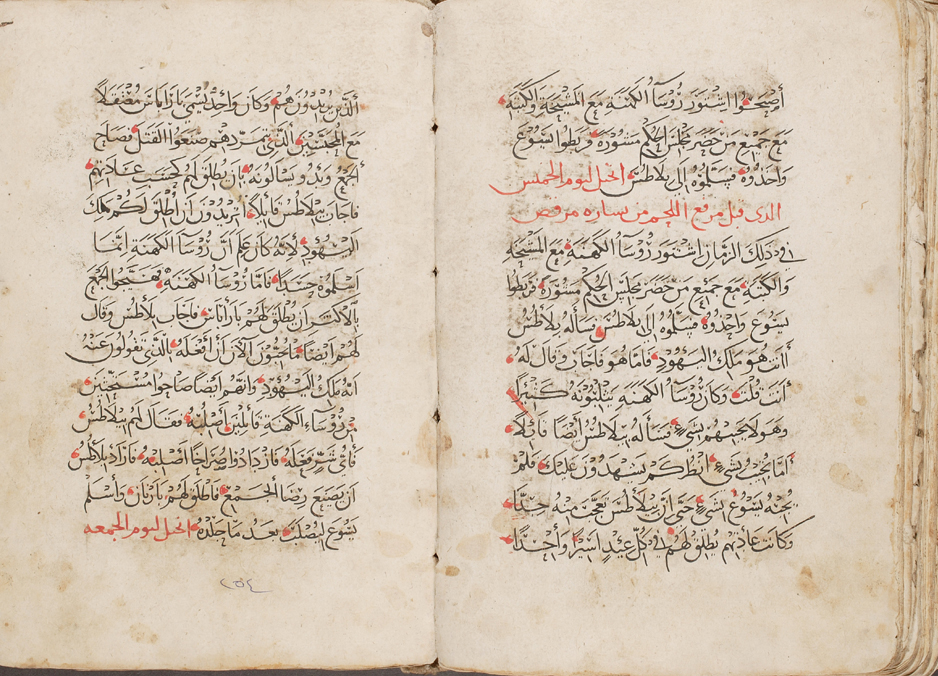 أصبحوا اشتور رؤسا الكهنة مع المشيخة والكتبة
مع جميع من حضر مجلس الحكم مشورة وربطوا يسوع
واخذوه فسلموه الى بلاطس انجيل ليوم الخميس
الذى قبل مرفع اللحم من بشاره مرقص
فى ذلك الزمان اشتور رؤسا الكهنة مع المشيخة
والكتبة مع جميع من حضر مجلس الحكم مشورة فربطوا
يسوع واخذوه فسلموه الى بلاطس فسأله بيلاطس
أانت هو ملك اليهود فاما هو فاجاب وقال له
أنت قلت وكان رؤسا الكهنة يثلبونه كثيرًا
وهو لا يجيبهم بشيء فسأله بيلاطس أيضًا قائلًا
أما تجيب بشيء انظر كم يشهدون عليك فلم
يجبه يسوع بشيء حتى ان بيلاطس تعجب منه جدًا
وكانت عادتهم يطلق لهم فى كل عيد اسيرًا واحدًا
الذين يريدون هم وكان واحد يسمى باراباس معتقلًا
مع المجلسين الذى تمردهم صنعوا القتل فصاح
الجمع وبدوا يسألونه ان يطلق لهم كحسب عادتهم
فاجاب بيلاطس قايلًا أتريدون ان أطلق لكم ملك
اليهود لانه كان علم ان رؤسا الكهنة انما
اسلموه حسدًا فاما رؤسا الكهنة فهيجوا الجمع
بالاكثر ان يطلق لهم باراباس فاجاب بلاطس وقال
لهم أيضًا ما تحبون الآن ان أفعله بالذى تقولون عنه
أنه ملك اليهود وانهم ايضًا صاحوا
من رؤساء الكهنة قائلين أصلبه فقال لهم بيلاطس
فأى شر فعله فازدادوا صراخًا أصلبه فاراد بلاطس
ان يصنع رضا الجميع فاطلق لهم باربان وأسلم
يسوع ليصلب بعد ما جلده انجيل ليوم الجمعه
٢٥٤